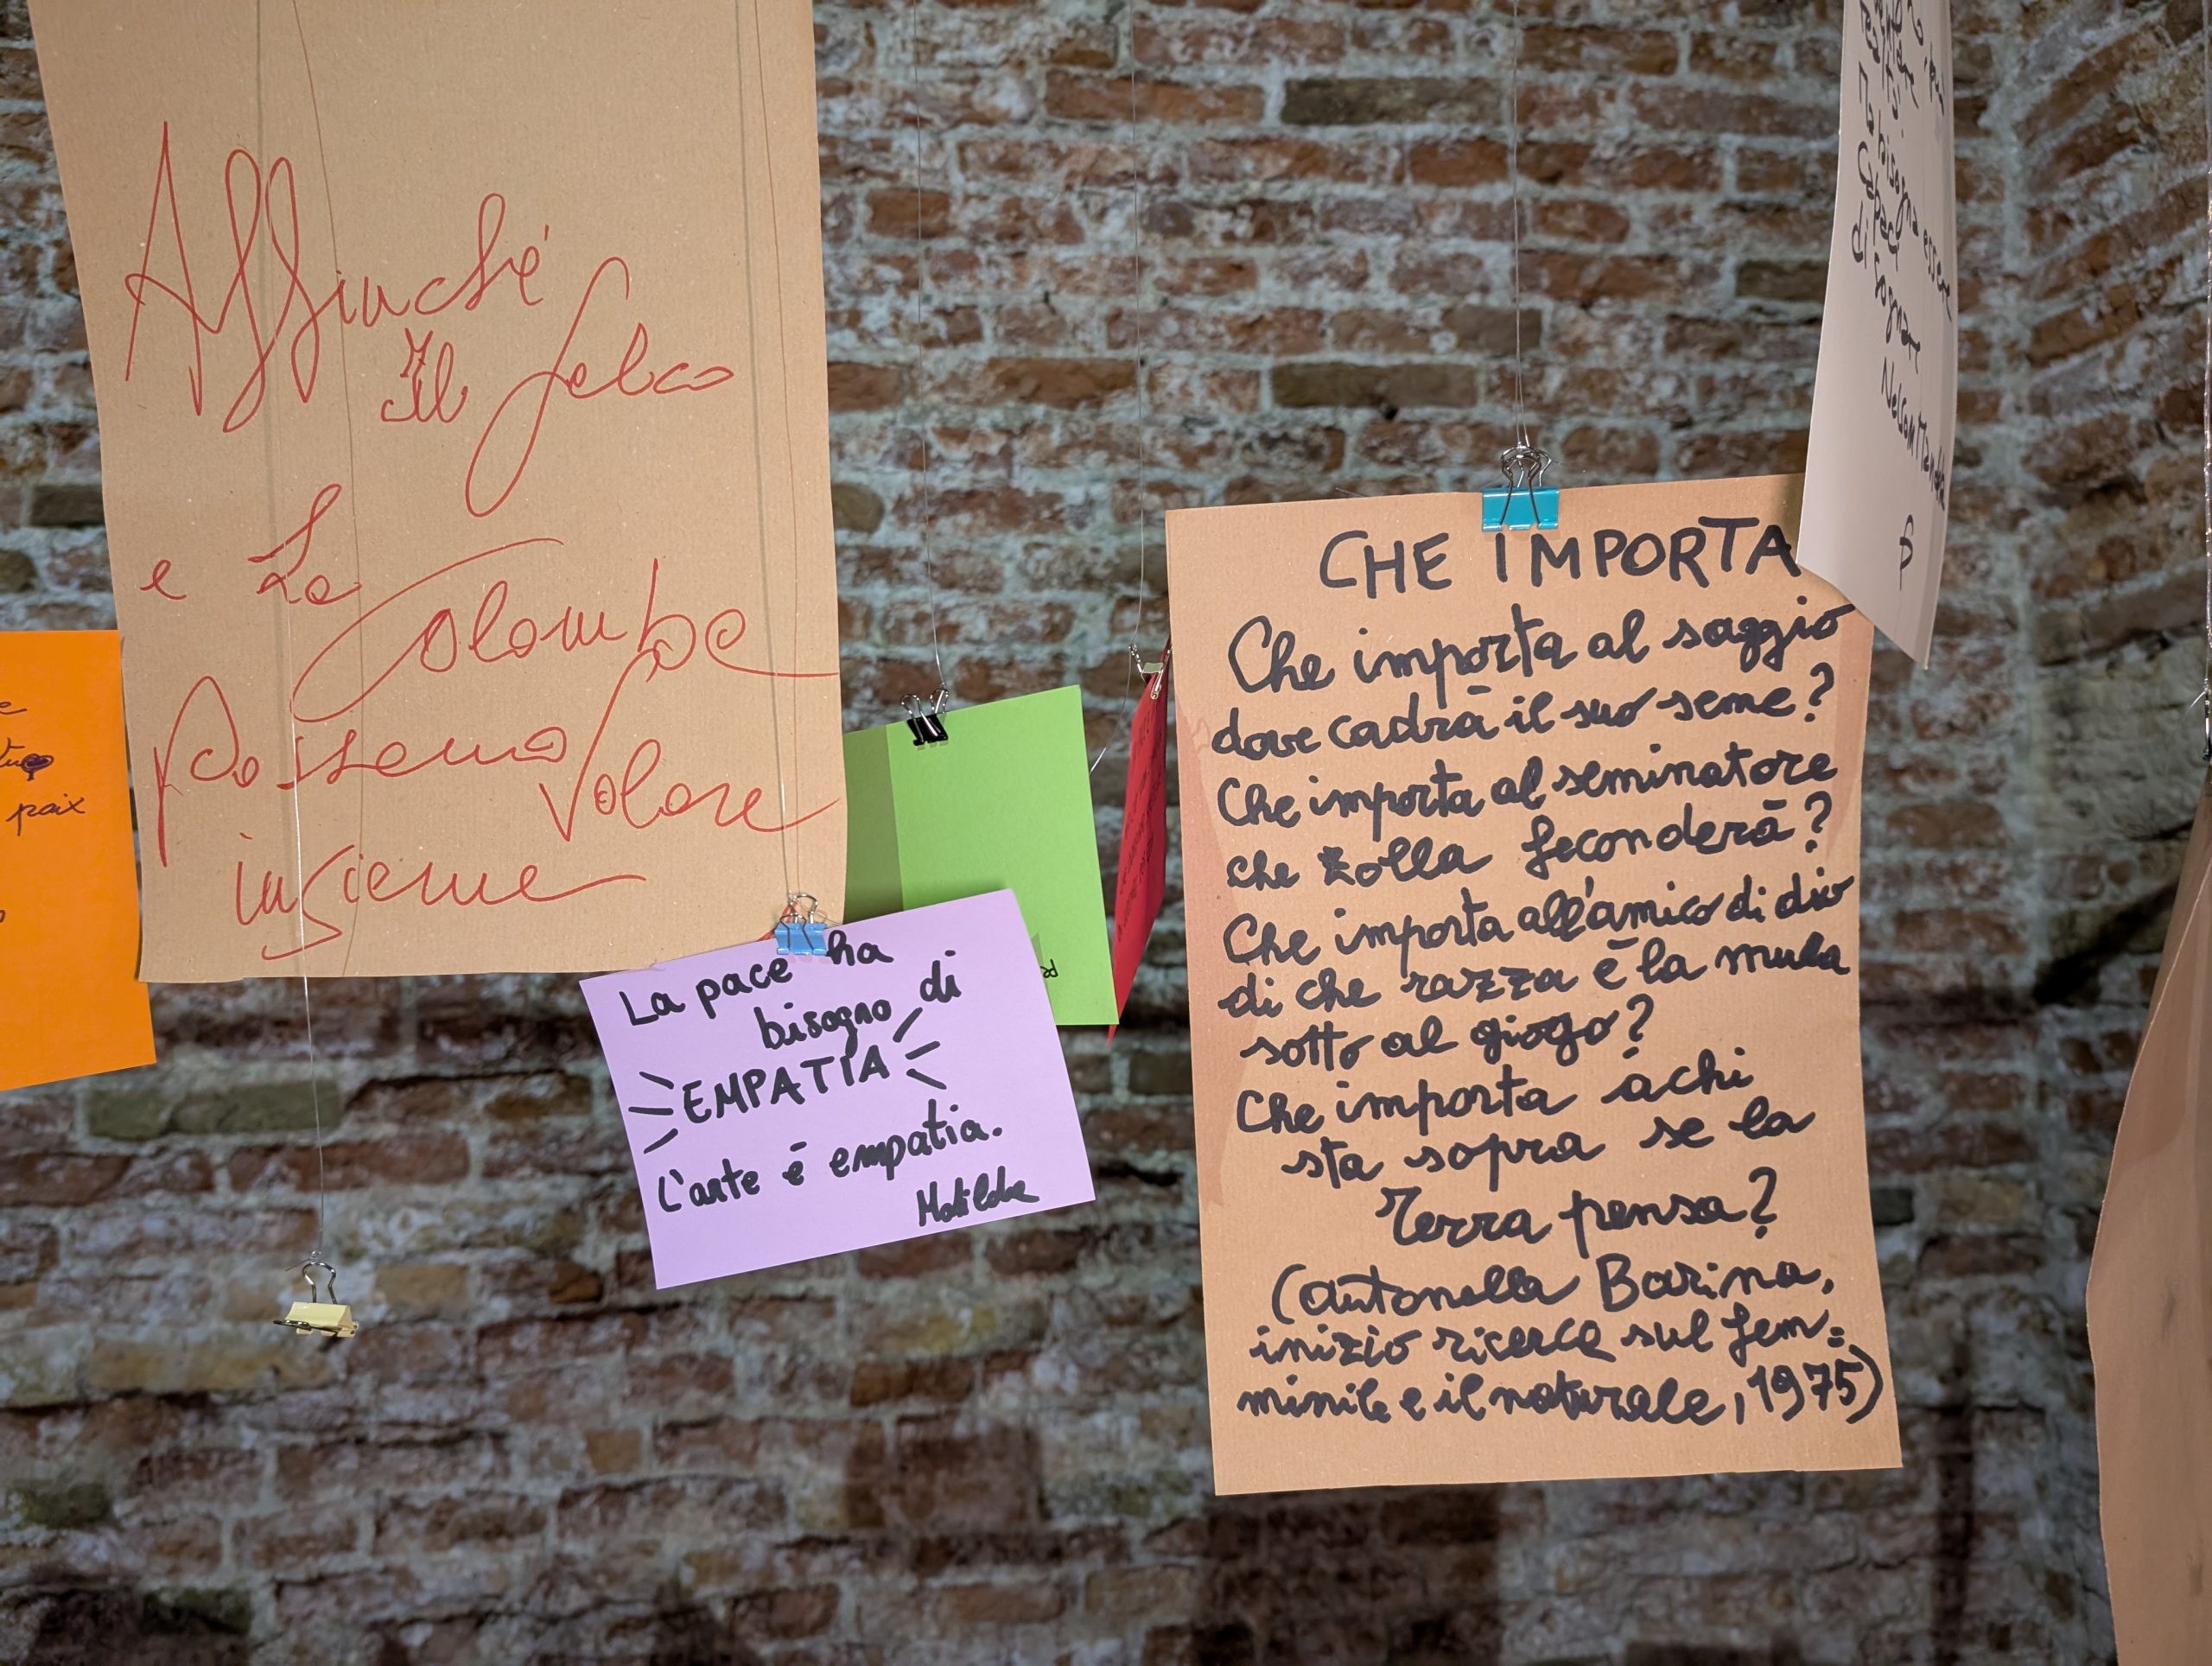 Affinché
Il falco
e La
Colomba
possano
Volare
insieme
paix
La pace ha
bisogno di
EMPATIA
L'arte è empatia.
Matilde
CHE IMPORTA
Che importa al saggio
dove cadrà il suo seme?
Che importa al seminatore
che zolla feconderà?
Che importa all'amico di dio
di che razza è la mula
sotto al giogo?
Che importa a chi
sta sopra se la
Terra pensa?
(Antonella Barina,
inizio ricerca sul fem=
minile e il naturale, 1975)
Nelson Mandela